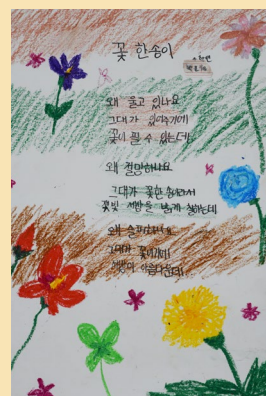 꽃 한송이
왜 울고 있나요
그대가 있어주기에
꽃이 필 수 있는데
왜 절망하나요
그대가 꽃한송이라서
꽃빛 세상을 넓게 칠하는데
왜 슬퍼하세요
그대가 꽃이기에
세상이 아름다운데